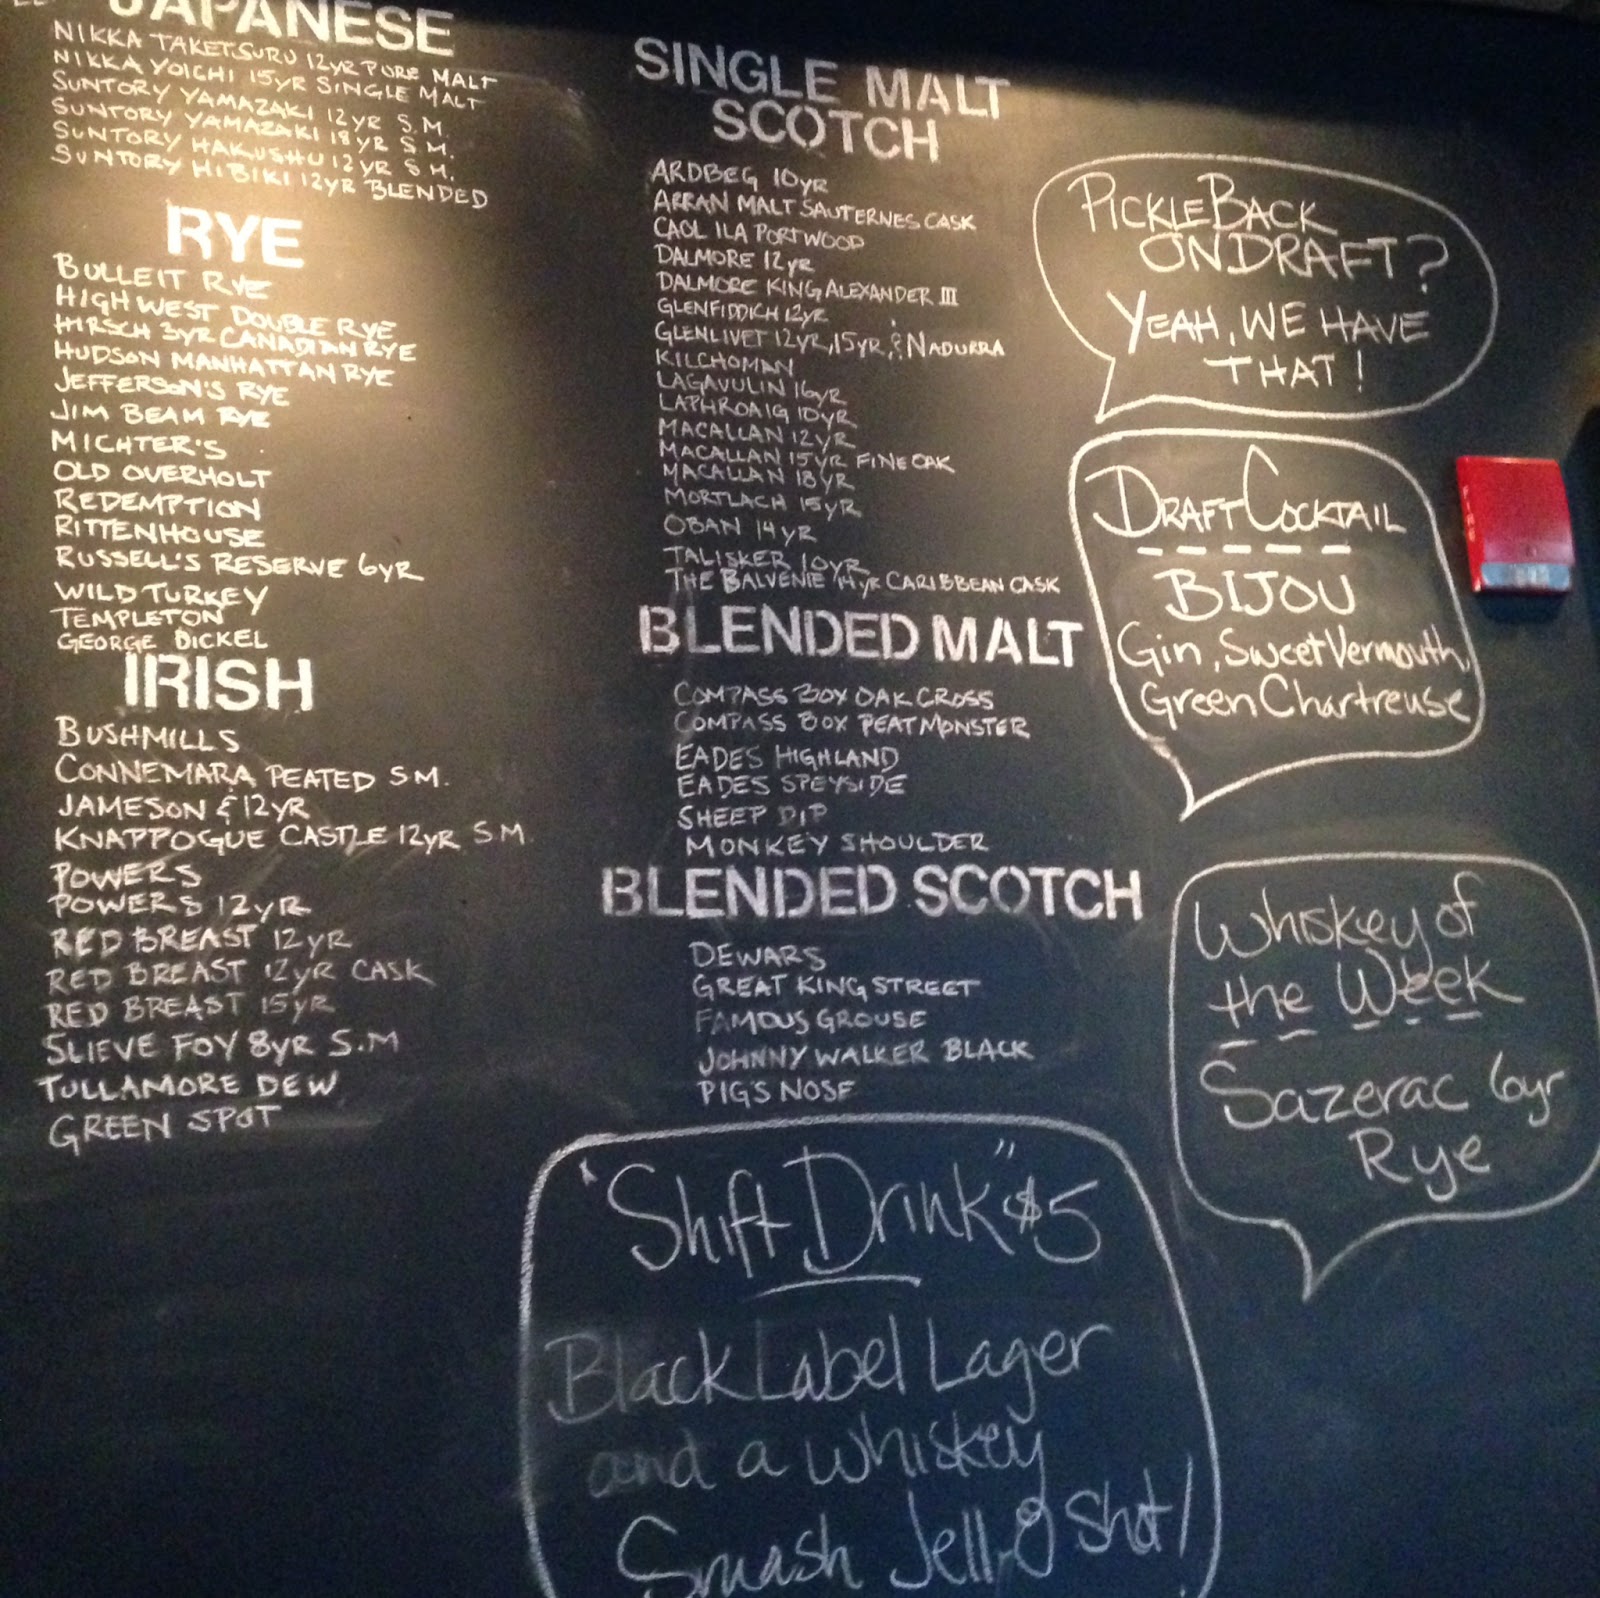 JAPANESE
NIKKA TAKETSURU 12YR PURE MALT
NIKKA YOICHI 15YR SINGLE MALT
SUNTORY YAMAZAKI 12YR S.M.
SUNTORY YAMAZAKI 18YR S.M.
SUNTORY HAKUSHU 12YR S.M.
SUNTORY HIBIKI 12YR BLENDED
RYE
BULLEIT RYE
HIGH WEST DOUBLE RYE
HIRSCH 3YR CANADIAN RYE
HUDSON MANHATTAN RYE
JEFFERSON'S RYE
JIM BEAM RYE
MICHTER'S
OLD OVERHOLT
REDEMPTION
RITTENHOUSE
RUSSELL'S RESERVE 6YR
WILD TURKEY
TEMPLETON
GEORGE DICKEL
IRISH
BUSHMILLS
CONNEMARA PEATED S.M.
JAMESON & 12YR
KNAPPOGUE CASTLE 12YR S.M.
POWERS
POWERS 12YR
RED BREAST 12YR
RED BREAST 12YR CASK
RED BREAST 15YR
SLIEVE FOY 8YR S.M
TULLAMORE DEW
GREEN SPOT
SINGLE MALT
SCOTCH
ARDBEG 10YR
ARRAN MALT SAUTERNES CASK
CAOL ILA PORTWOOD
DALMORE 12YR
DALMORE KING ALEXANDER III
GLENFIDDICH 12YR
GLENLIVET 12YR, 15YR, & NADURRA
KILCHOMAN
LAGAVULIN 16YR
LAPHROAIG 10YR
MACALLAN 12YR
MACALLAN 15YR FINE OAK
MACALLAN 18YR
MORTLACH 15YR
OBAN 14YR
TALISKER 10YR
THE BALVENIE 14YR CARIBBEAN CASK
BLENDED MALT
COMPASS BOX OAK CROSS
COMPASS BOX PEAT MONSTER
EADES HIGHLAND
EADES SPEYSIDE
SHEEP DIP
MONKEY SHOULDER
BLENDED SCOTCH
DEWARS
GREAT KING STREET
FAMOUS GROUSE
JOHNNY WALKER BLACK
PIG'S NOSE
PICKLEBACK
ON DRAFT?
YEAH, WE HAVE
THAT!
DRAFT COCKTAIL
BIJOU
Gin, Sweet Vermouth,
Green Chartreuse
Whiskey of
the Week
Sazerac 6yr
Rye
"Shift Drink" $5
Black Label Lager
and a whiskey
Smash Jell-O Shot!